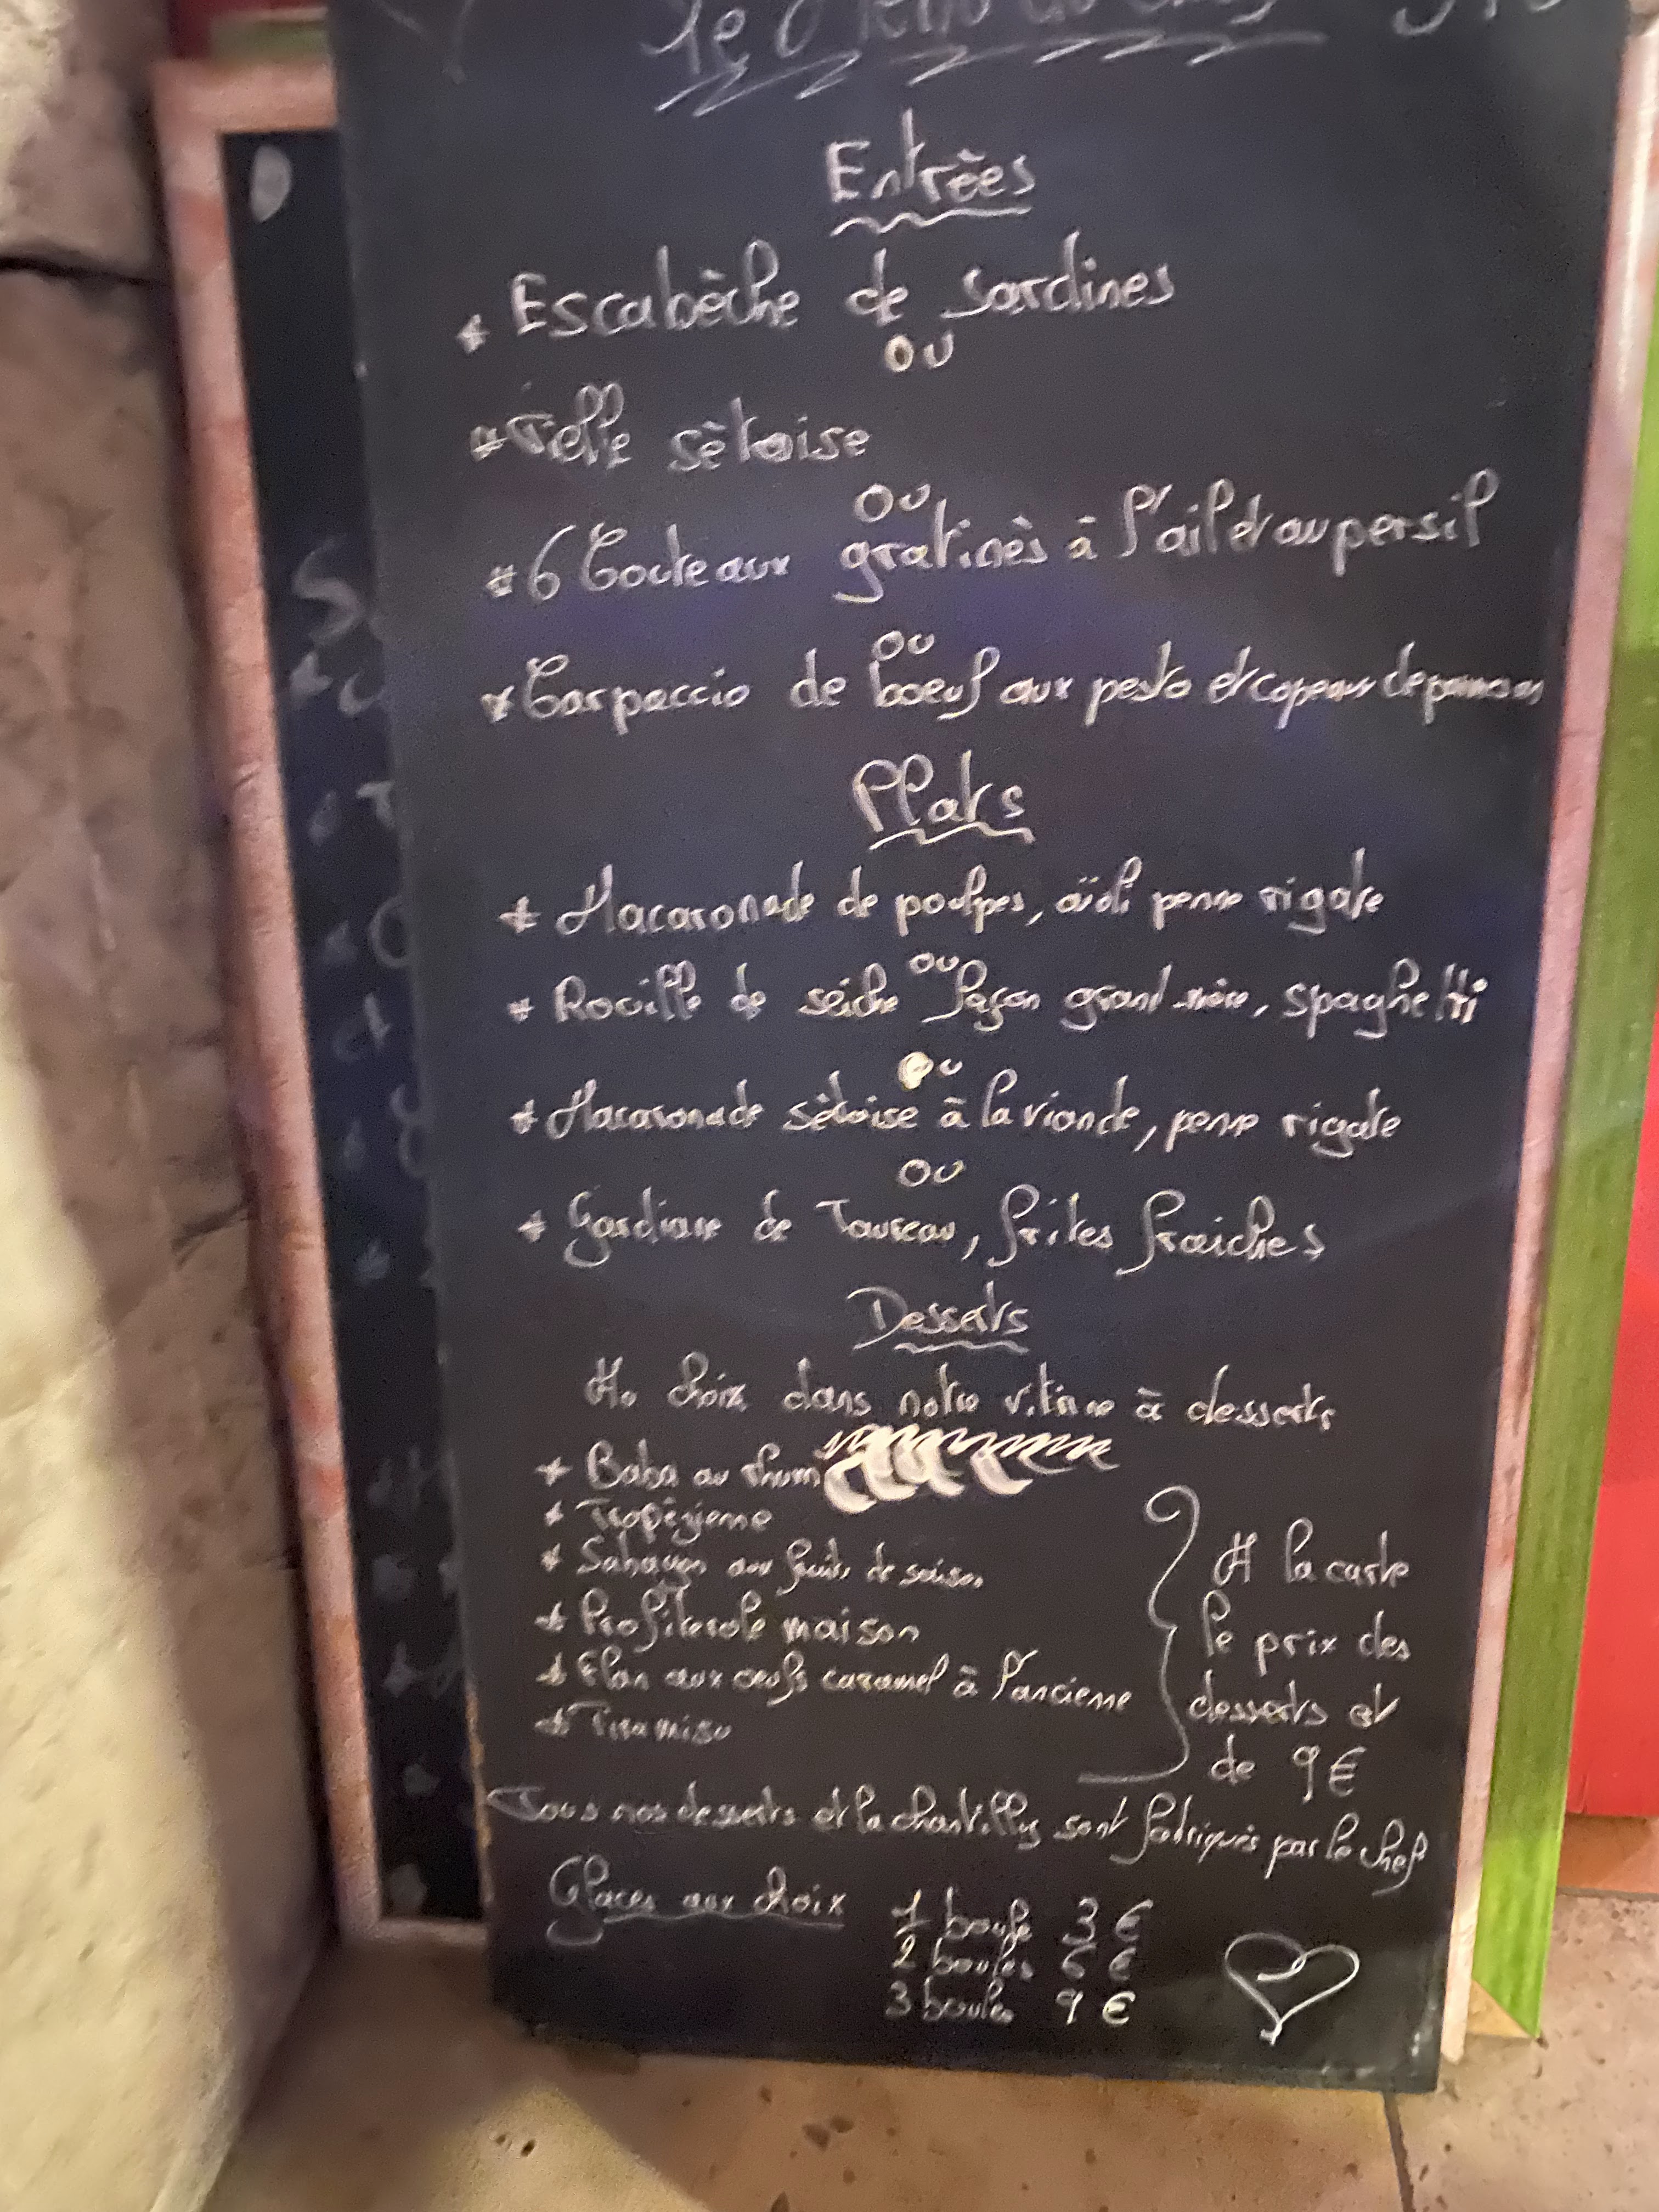 Entrées
* Escabèche de sardines
ou
* Tielle sètoise
ou
* 6 Couteaux gratinès à l'ail et au persil
ou
* Carpaccio de boeuf aux pesto et copeaux de parmesan
Plats
* Macaronade de poulpes, aïoli penne rigate
ou
* Rouille de seiche façon grand mère, spaghetti
ou
* Macaronade sètoise à la viande, penne rigate
ou
* Gardiane de Taureau, frites fraiches
Desserts
Au choix dans notre vitrine à desserts
* Baba au rhum
* Tropézienne
* Sabayon aux fruits de saison
* Profiterole maison
* Flan aux oeufs caramel à l'ancienne
* Tiramisu
A la carte
le prix des
desserts est
de 9€
Tous nos desserts et la chantilly sont fabriqués par le chef
Glaces aux choix
1 boule 3 €
2 boules 6 €
3 boules 9 €